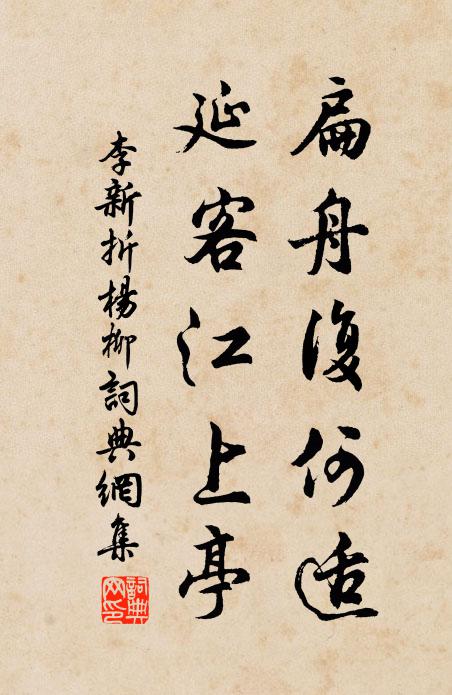 扁舟復何適
延客江上亭
李新折楊柳詞典網集
詞典網印